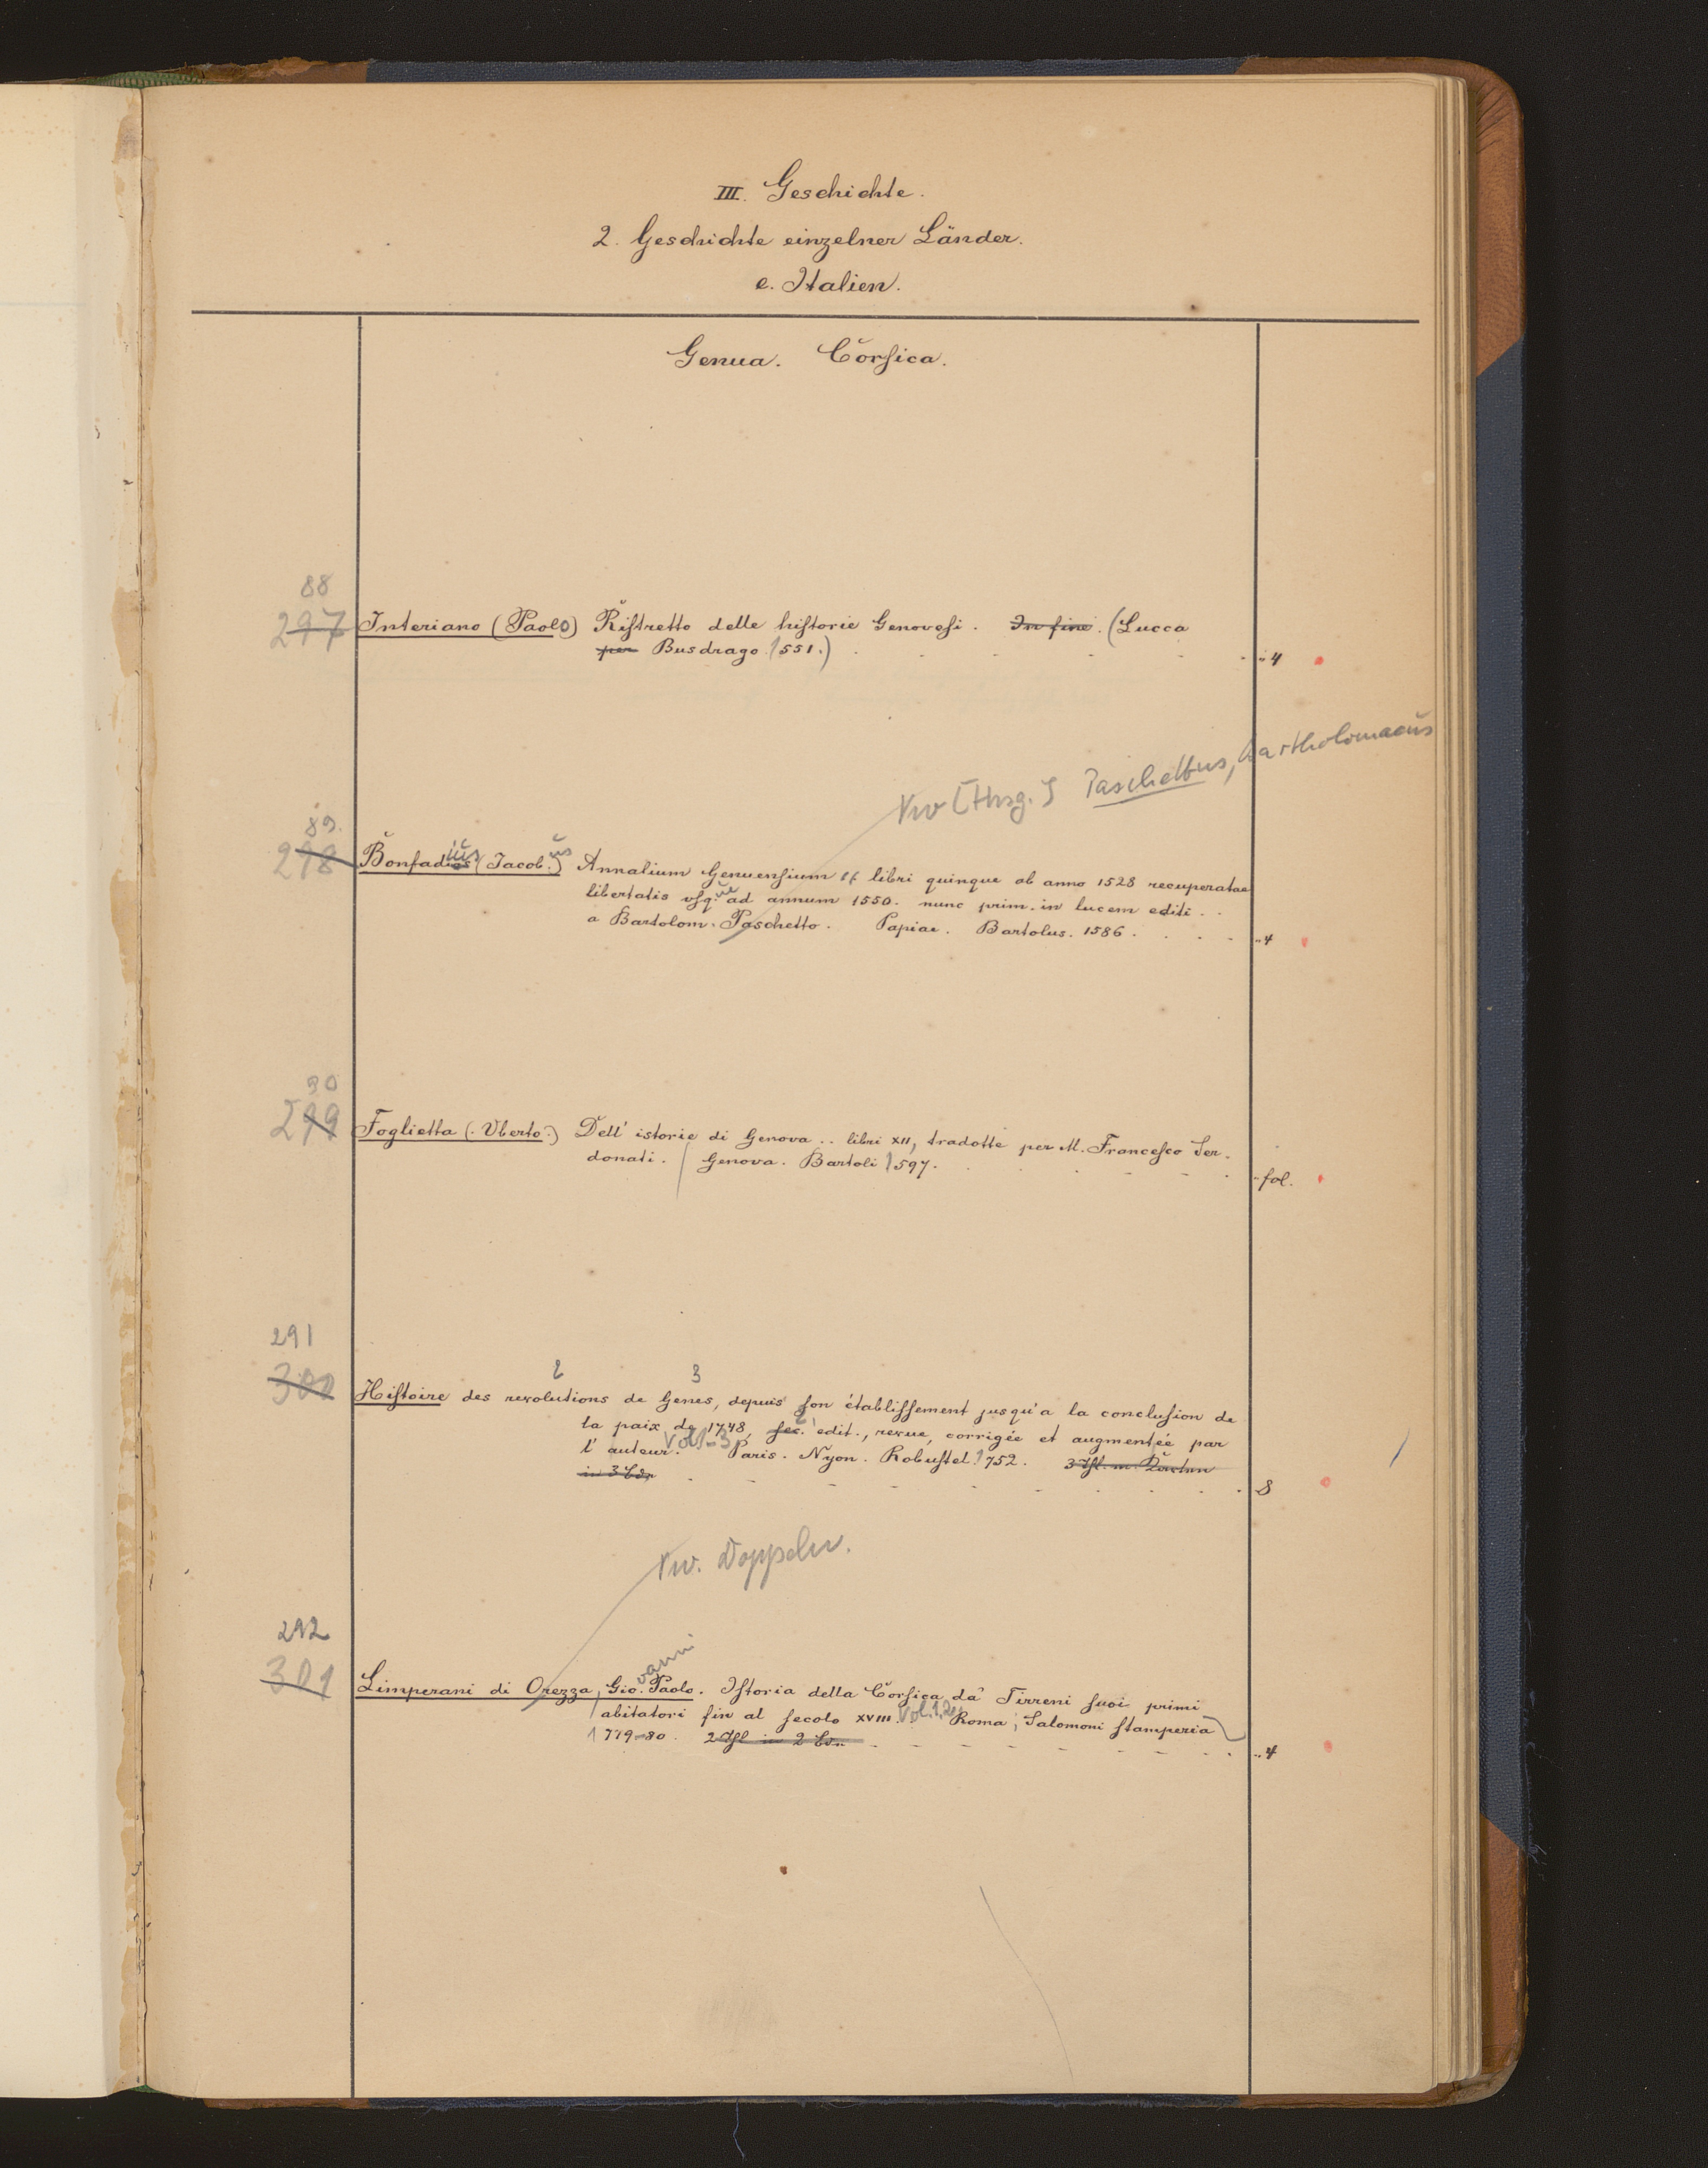 III. Geschichte.
2. Geschichte einzelner Länder.
e. Italien.
Genua. Corsica.
88
297 Interiano (Paolo) Ristretto delle historie Genovesi. In fine. (Lucca
per Busdrago 1551.) 4
Vw [Hrsg.] Paschettus, Bartholomaeus
89.
298 Bonfadius (Jacobus) Annalium Genuensium libri quinque ab anno 1528 recuperatae
libertatis usque ad annum 1550. nunc prim. in lucem editi..
a Bartolom. Paschetto. Papiae. Bartolus. 1586. 4
90
299 Foglietta (Uberto) Dell' istorie di Genova .. libri XII, tradotte per M. Francesco Ser-
donati. Genova. Bartoli 1597. fol.
291
2 3
300 Histoire des revolutions de Genes, depuis son établissement jusqu'a la conclusion de
la paix de 1748, sec. 2 edit., revue, corrigée et augmentée par
l'auteur. Vol 1-3 Paris. Nyon. Robustel. 1752.
in 3 Bdn 8
Vw. Doppeln.
292
301 Limperani di Orezza, Giovanni Paolo. Istoria della Corsica da Tirreni suoi primi
abitatori fin al secolo XVIII. Vol. 1,2 Roma, Salomoni stamperia
1779-80. 2 Thl in 2 Bdn 4